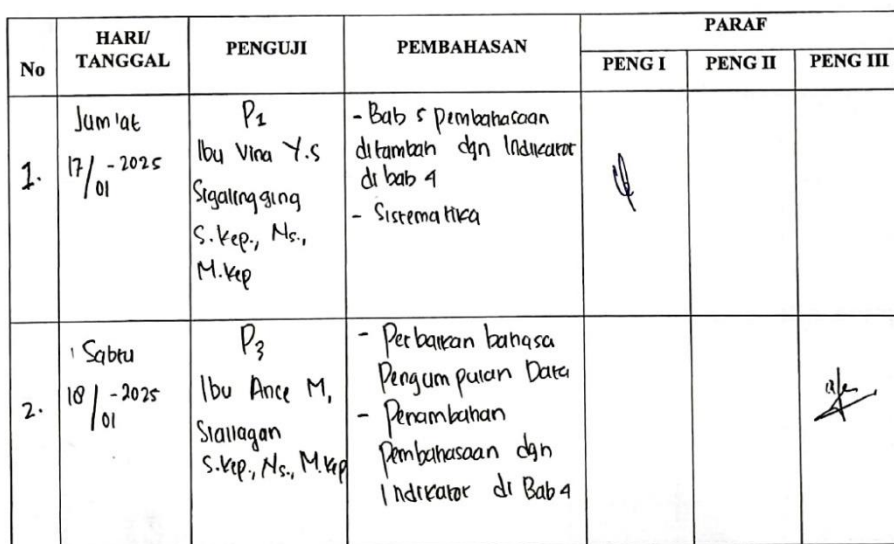 No HARI/ TANGGAL PENGUJI PEMBAHASAN PARAF
PENG I PENG II PENG III
1.
Jum'at
17/01 - 2025
P1
Ibu Vina Y.S
Sigalingging
S.Kep., Ns.,
M.Kep
- Bab 5 pembahasaan
ditambah dgn Indikator
di bab 4
- Sistematika
2.
Sabtu
18/01 - 2025
P3
Ibu Ance M,
Siallagan
S.Kep., Ns., M.Kep
- Perbaikan bahasa
Pengumpulan Data
- Penambahan
Pembahasaan dgn
Indikator di Bab 4